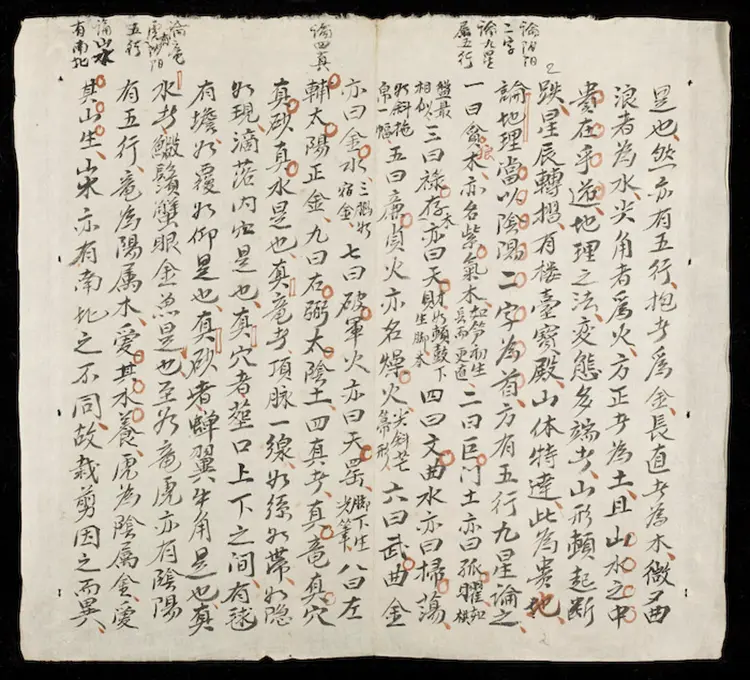 是也、然亦有五行、抱者為金、長直者為木、微曲
浪者為水、尖角者為火、方正者為土、且山水之中
貴在乎逆、地理之法、変態多端者、山形頓起断
跌、星辰轉摺、有楼臺寶殿、山体特達、此為貴地、
論陰陽
二字
論九星
屬五行
論地理當以陰陽二字為首、方有五行九星論之、
一曰貪狼木、亦名紫氣木、如笋初生
長而更直
二曰巨门土、亦曰孤曜、
盤最
相似
三曰祿存木、亦曰天財、如頓鼓下
生脚木
四曰文曲水、亦曰掃蕩、
如斜拖
帛一幅
五曰廉貞火、亦名燥火、尖斜芒
六曰武曲金
亦曰金水、
七曰破軍火、亦曰天罡、脚下生
八曰左
論四真
輔太陽正金、九曰右弼太陰土、四真者、真竜真穴
真砂真水是也、真竜者、頂脉一線、如絲如帶、如隐
如現、滴落内穴是也、真穴者、壟口上下之间、有毬
有擔、如覆如仰是也、真砂者、蝉翼牛角是也、真
水者、鰕鬚蟹眼金魚是也、至如竜虎亦有陰陽
論竜
虎陰陽
五行
有五行、竜為陽属木、愛其水養、虎為陰属金、愛
論山水
有南北
其山生、山水亦有南北之不同、故裁剪因之而異、